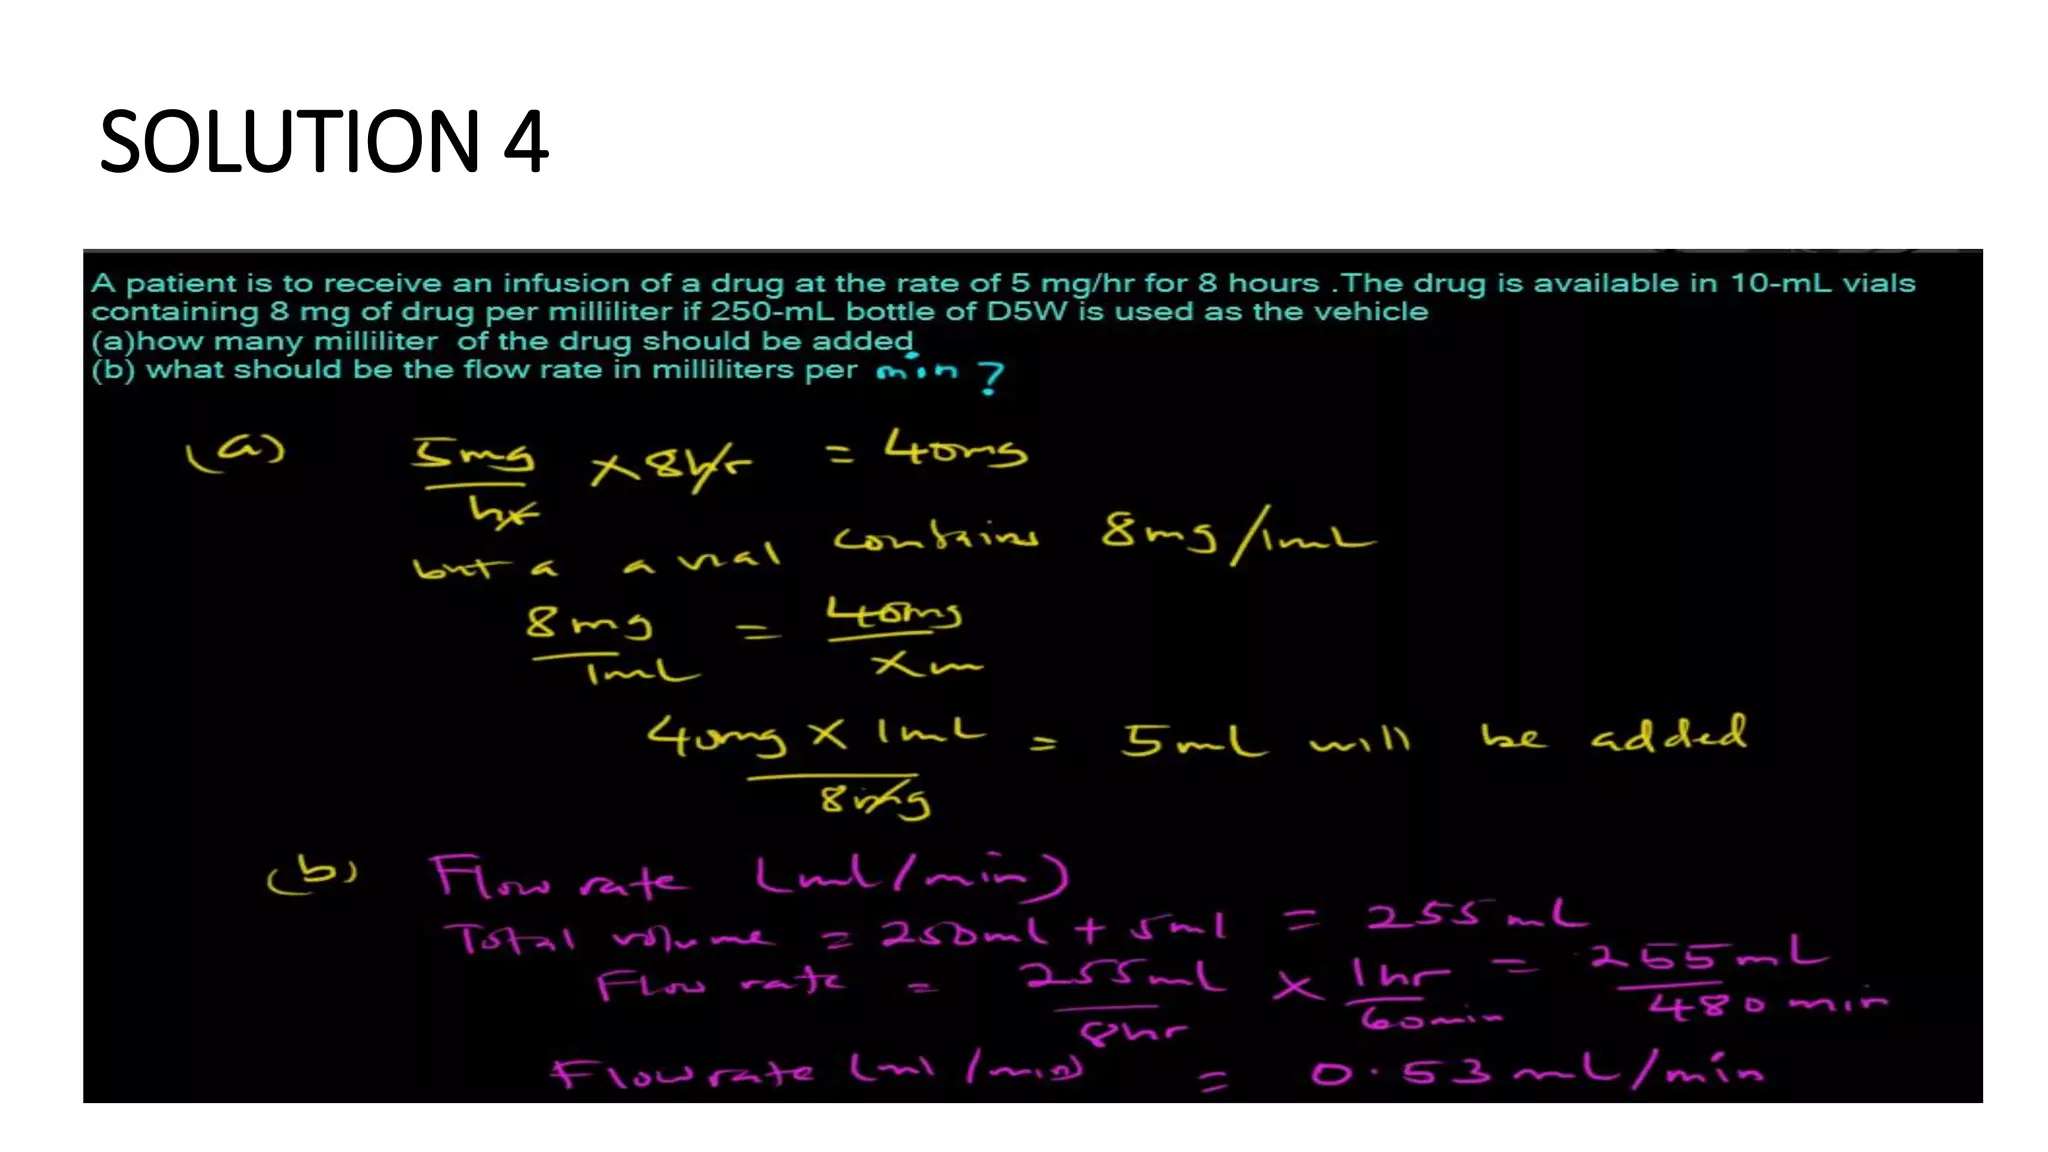 SOLUTION 4
A patient is to receive an infusion of a drug at the rate of 5 mg/hr for 8 hours .The drug is available in 10-mL vials
containing 8 mg of drug per milliliter if 250-mL bottle of D5W is used as the vehicle
(a)how many milliliter of the drug should be added
(b) what should be the flow rate in milliliters per min ?
(a) 5mg/hr × 8hr = 40mg
but a a vial contains 8mg/1mL
8mg/1mL = 40mg/xm
40mg × 1mL/8mg = 5mL will be added
(b) Flow rate (ml/min)
Total volume = 250ml + 5ml = 255mL
Flow rate = 255mL/8hr × 1hr/60min = 255mL/480min
Flow rate (ml/min) = 0.53mL/min